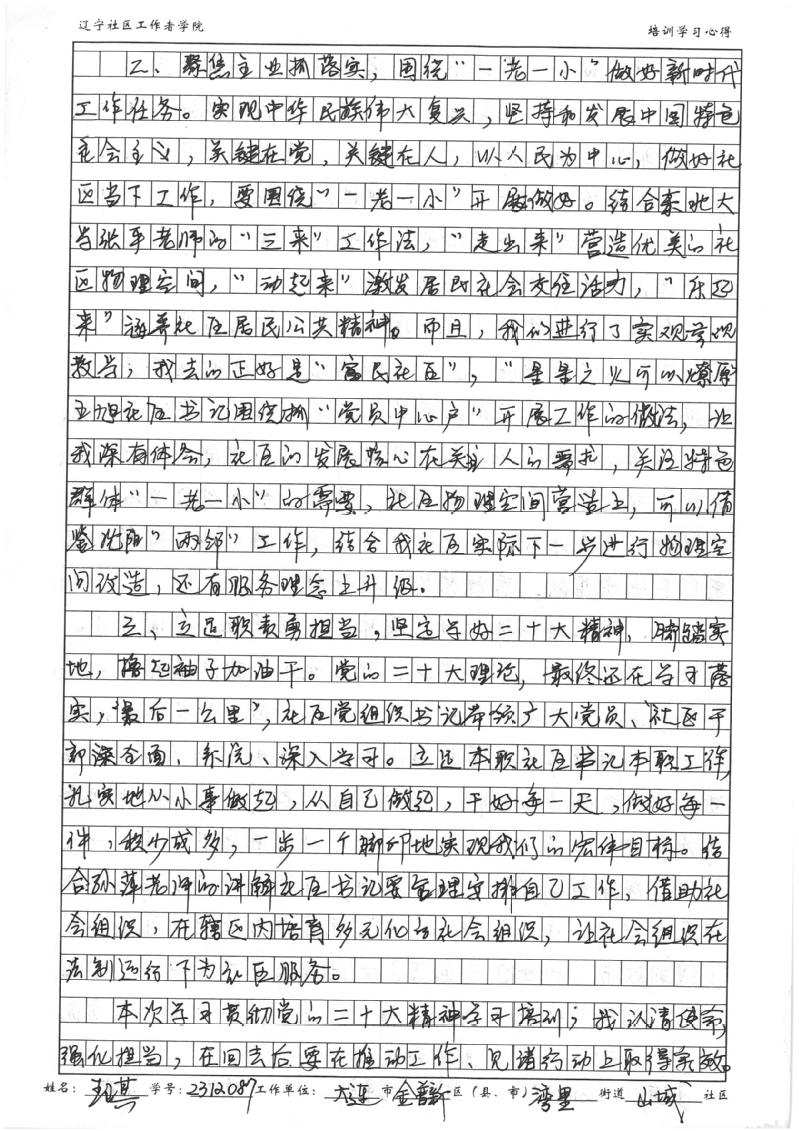 辽宁社区工作者学院
培训学习心得
二、聚焦主业抓落实，围绕“一老一小”做好新时代
工作任务。实现中华民族伟大复兴，坚持和发展中国特色
社会主义，关键在党，关键在人，以人民为中心，做好社
区当下工作，要围绕“一老一小”开展做好。结合东北大
学张平老师的“三来”工作法，“走出来”营造优美的社
区物理空间，“动起来”激发居民社会交往活力，“乐起
来”涵养社区居民公共精神。而且，我们进行了实观景观
教学；我去的正好是“富民社区”，“星星之火可以燎原”
王旭社区书记围绕抓“党员中心户”开展工作的做法，让
我深有体会，社区的发展核心在关注人的需求，关注特色
群体“一老一小”的需要，社区物理空间营造上，可以借
鉴沈阳“两邻”工作，结合我社区实际下一步进行物理空
间改造，还有服务理念上升级。
三、立足职责勇担当，坚定学好二十大精神，脚踏实
地，撸起袖子加油干。党的二十大理论，最终还在学习落
实，“最后一公里”，社区党组织书记带领广大党员、社区干
部深全面、系统、深入学习。立足本职社区书记本职工作，
扎实地从小事做起，从自己做起，干好每一天，做好每一
件，积少成多，一步一个脚印地实现我们的宏伟目标。结
合孙萍老师的讲解社区书记要管理安排自己工作，借助社
会组织，在辖区内培育多元化的社会组织，让社会组织在
法制运行下为社区服务。
本次学习贯彻党的二十大精神学习培训；我认清使命，
强化担当，在回去后要在推动工作、见诸行动上取得实效。
姓名： 学号：2312087 工作单位： 大连 市 金普新 区（县、市） 湾里 街道 山城 社区